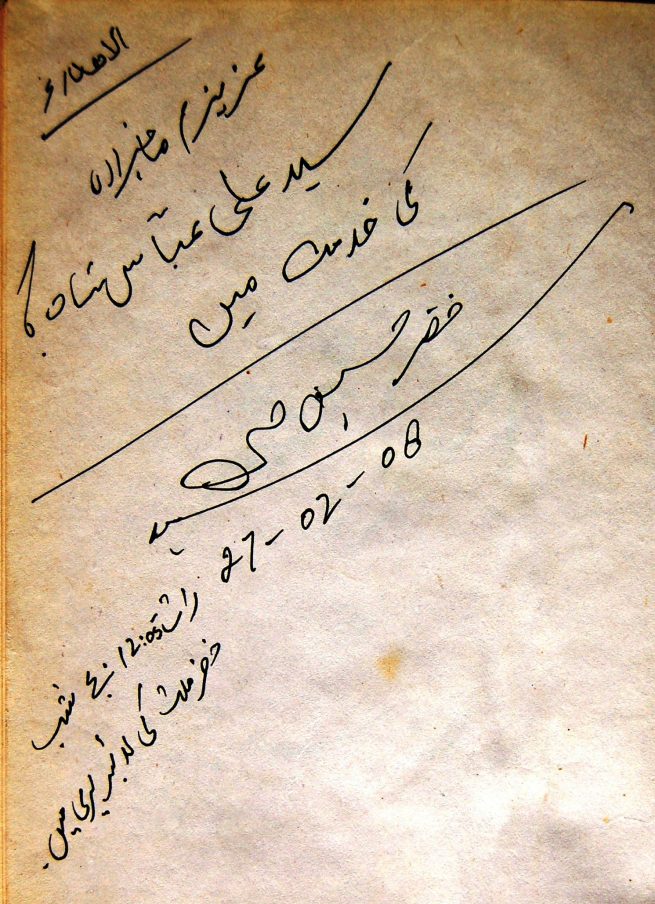 عزیزم صاحبزادہ
سید علی عباس شاہ
کی خدمت میں
سید خضر حسین
27-02-08
رات 12:05 بجے شب
کی لائبریری میں۔